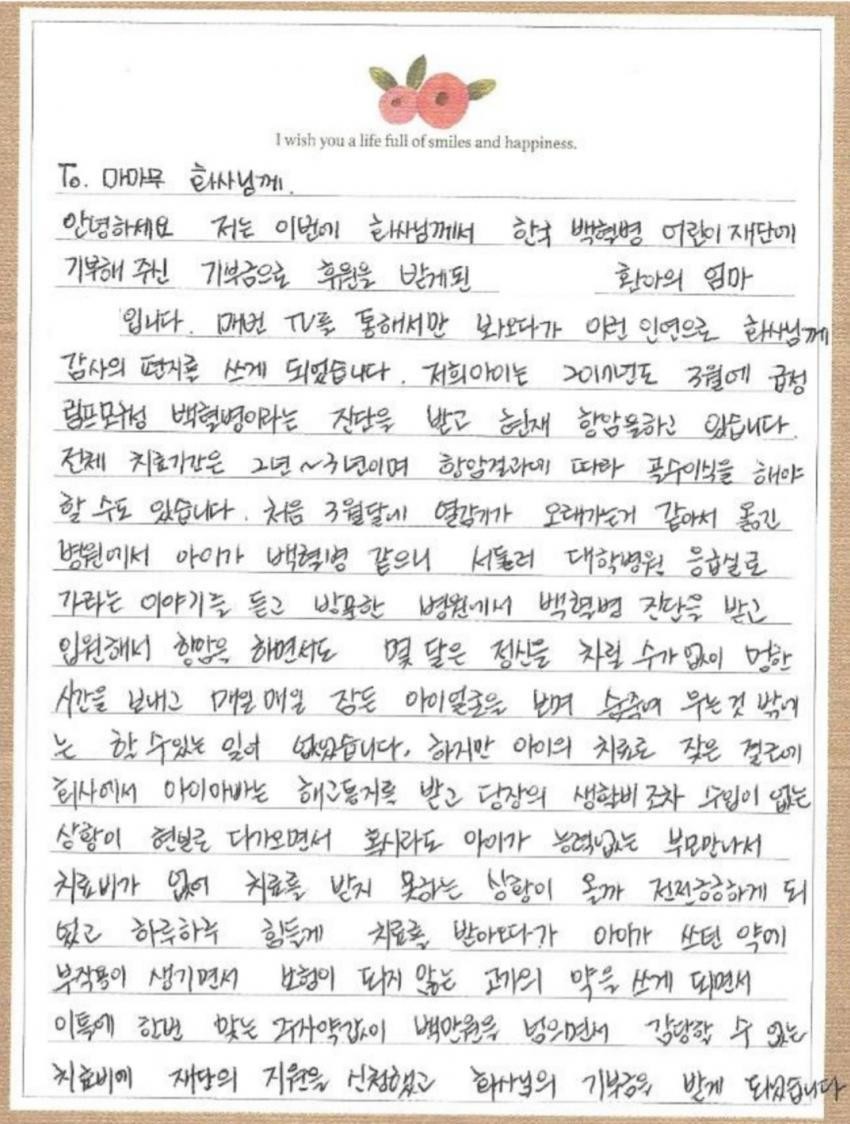 I wish you a life full of smiles and happiness.
To. 마마무 화사님께.
안녕하세요 저는 이번에 화사님께서 한국 백혈병 어린이 재단에
기부해 주신 기부금으로 후원을 받게된 환아의 엄마
입니다. 매번 TV를 통해서만 봐오다가 이런 인연으로 화사님께
감사의 편지를 쓰게 되었습니다. 저희아이는 2017년도 3월에 급성
림프모구성 백혈병이라는 진단을 받고 현재 항암을하고 있습니다.
전체 치료기간은 2년~3년이며 항암결과에 따라 골수이식을 해야
할 수도 있습니다. 처음 3월달에 열감기가 오래가는거 같아서 옮긴
병원에서 아이가 백혈병 같으니 서둘러 대학병원 응급실로
가라는 이야기를 듣고 방문한 병원에서 백혈병 진단을 받고
입원해서 항암을 하면서도 몇 달은 정신을 차릴 수가 없이 멍한
시간을 보내고 매일 매일 잠든 아이얼굴을 보며 숨죽여 우는것 밖에
는 할 수있는 일이 없었습니다. 하지만 아이의 치료로 잦은 결근에
회사에서 아이아빠는 해고통지를 받고 당장의 생활비 조차 수입이 없는
상황이 현실로 다가오면서 혹시라도 아이가 능력없는 부모만나서
치료비가 없어 치료를 받지 못하는 상황이 올까 전전긍긍하게 되
었고 하루하루 힘들게 치료를 받아오다가 아이가 쓰던 약에
부작용이 생기면서 보험이 되지 않는 고가의 약을 쓰게 되면서
이틀에 한번 맞는 주사약값이 백만원을 넘으면서 감당할 수 없는
치료비에 재단의 지원을 신청했고 화사님의 기부금을 받게 되었습니다